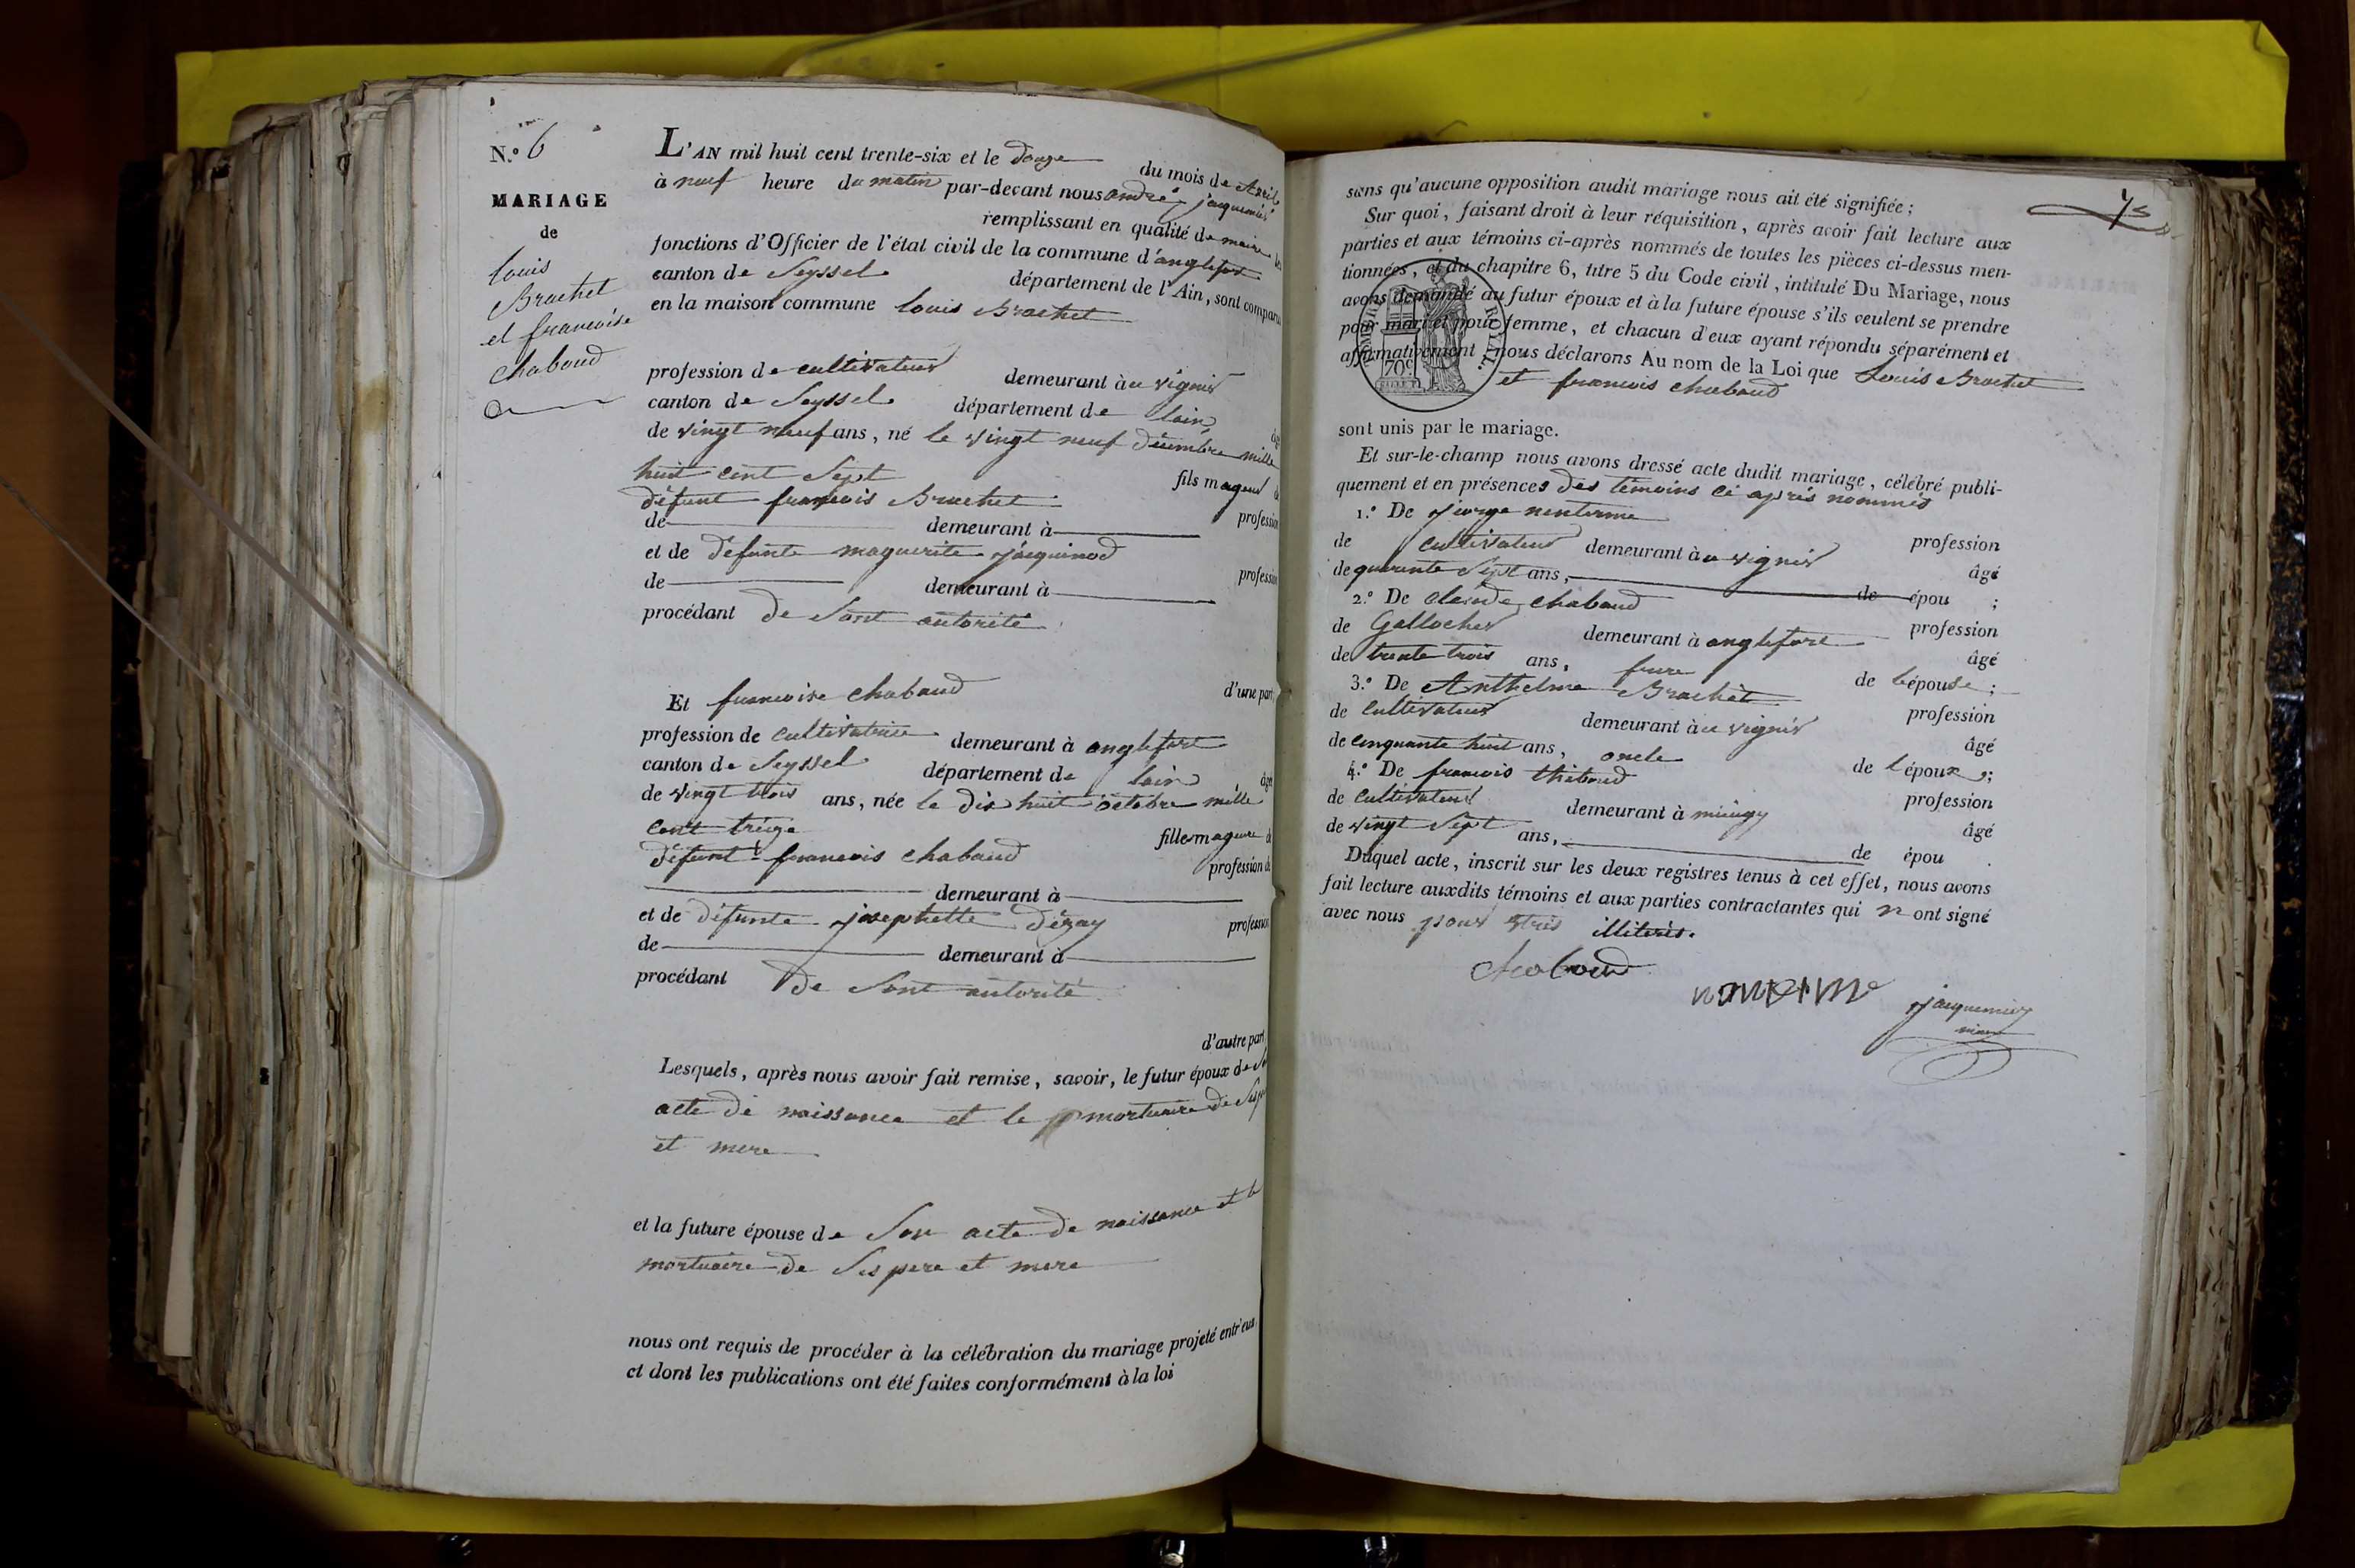 N.° 6
MARIAGE
de
louis
Brachet
et francoise
chabaud
L'AN mil huit cent trente-six et le douze du mois de Avril
à neuf heure du matin par-devant nous andré jacquemier
remplissant en qualité de maire les
fonctions d'Officier de l'état civil de la commune d'anglefort
canton de Seyssel département de l'Ain, sont comparus
en la maison commune louis Brachet
profession de cultivateur demeurant à au vignier
canton de Seyssel département de lain
de vingt neuf ans, né le vingt neuf décembre mille
huit cent sept fils mageur de
défunt francois Brachet profession
de demeurant à
et de défunte maguerite jacquinod profession
de demeurant à
procédant de sont autorité
d'une part
Et francoise chabaud
profession de cultivatrice demeurant à anglefort
canton de Seyssel département de lain âgée
de vingt trois ans, née le dix huit octobre mille
cent treize fille mageure de
défunt francois chabaud profession de
demeurant à
et de défunte josephette dézay profession
de demeurant à
procédant de sont autorité
d'autre part
Lesquels, après nous avoir fait remise, savoir, le futur époux de
acte de naissance et le mortuaire de
et mere
et la future épouse de son acte de naissance et le
mortuaire de ses pere et mere
nous ont requis de procéder à la célébration du mariage projeté entr'eux
et dont les publications ont été faites conformément à la loi
sans qu'aucune opposition audit mariage nous ait été signifiée;
Sur quoi, faisant droit à leur réquisition, après avoir fait lecture aux
parties et aux témoins ci-après nommés de toutes les pièces ci-dessus men-
tionnées, et du chapitre 6, titre 5 du Code civil, intitulé Du Mariage, nous
avons demandé au futur époux et à la future épouse s'ils veulent se prendre
pour mari et pour femme, et chacun d'eux ayant répondu séparément et
affirmativement, nous déclarons Au nom de la Loi que Louis Brachet
et francois chabaud
70c
sont unis par le mariage.
Et sur-le-champ nous avons dressé acte dudit mariage, célébré publi-
quement et en présences des témoins ci après nommés
1.° De profession
de cultivateur demeurant à au vignier âgé
de quarante sept ans, de épou ;
2.° De claude chabaud profession
de Gallocher demeurant à anglefort âgé
de trente trois ans, frere de lépouse;
3.° De Anthelme Brachet profession
de cultivateur demeurant à au vignier âgé
de cinquante huit ans, oncle de l'époux;
4.° De francois thibaud profession
de cultivateur demeurant à âgé
de vingt sept ans, de épou .
Duquel acte, inscrit sur les deux registres tenus à cet effet, nous avons
fait lecture auxdits témoins et aux parties contractantes qui n ont signé
avec nous pour illiteris.
chaboud
jacquemier
maire